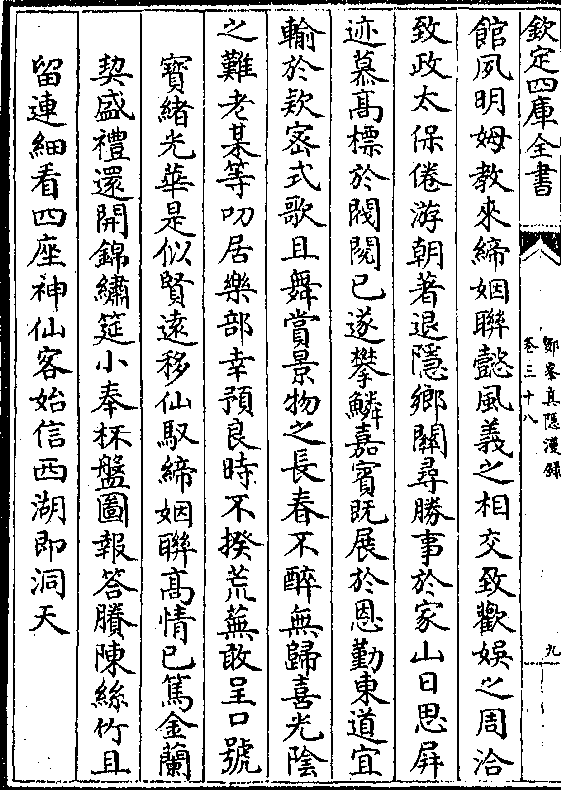 欽定四庫全書
鄮峯真隱漫録
卷三十八
九
館夙明姆教來締姻聯懿風義之相交致歡娛之周洽
致政太保倦游朝著退隱鄉關尋勝事於家山日思屏
迹慕髙標於閥閱已遂攀鱗嘉賓既展於恩勤東道宜
輸於欵宻式歌且舞賞景物之長春不醉無歸喜光陰
之難老某等叨居樂部幸預良時不揆荒蕪敢呈口號
寳緒光華是似賢逺移仙馭締姻聯髙情已篤金蘭
契盛禮還開錦繡筵小奉杯盤圖報答賸陳絲竹且
留連細看四座神仙客始信西湖即洞天